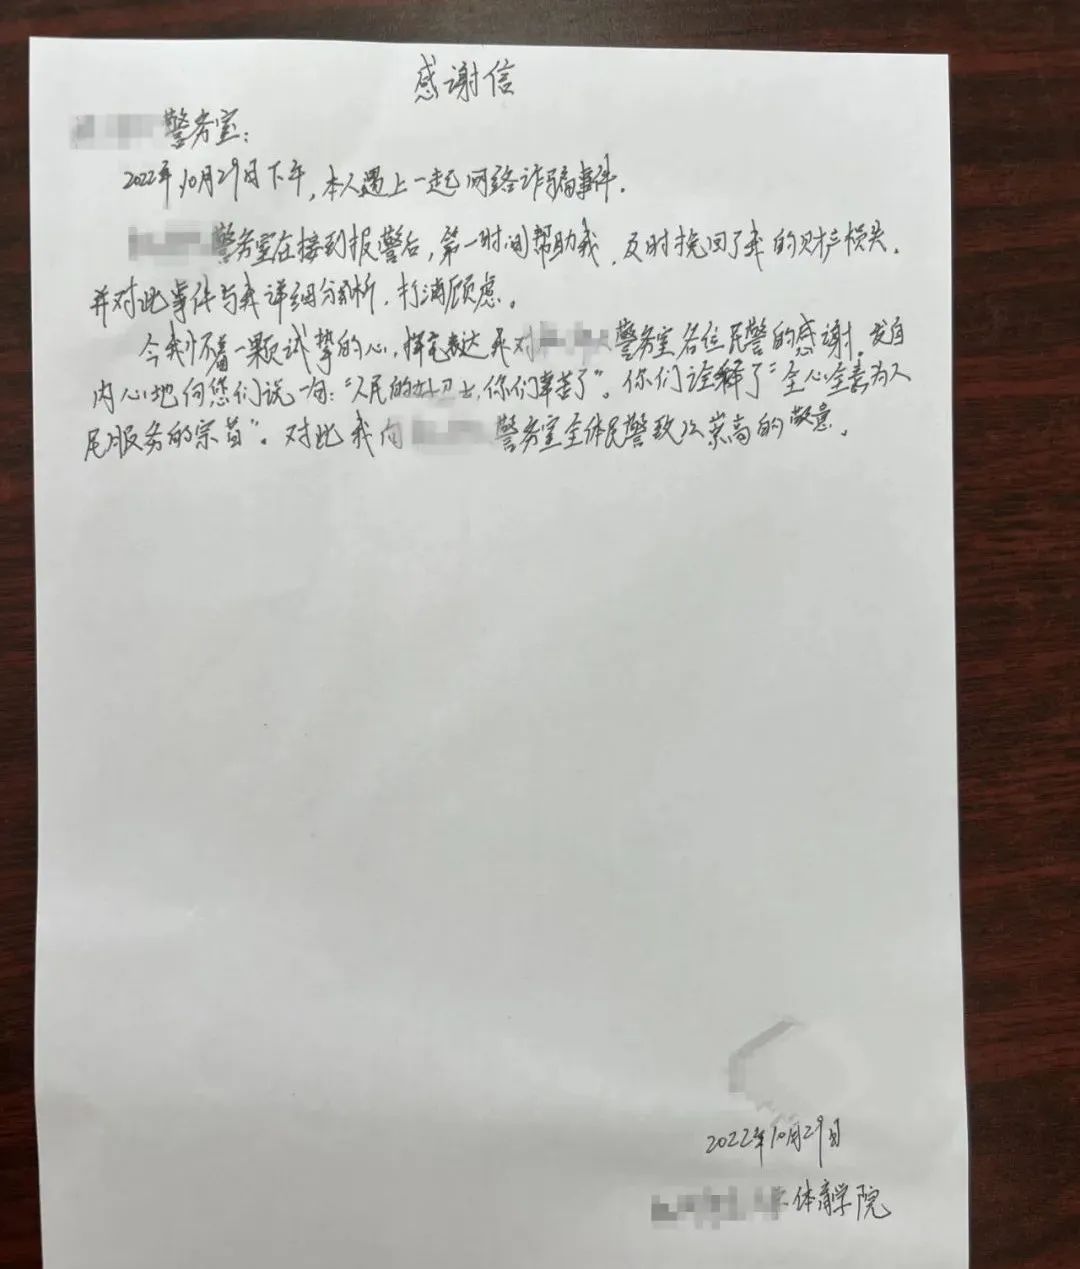 感谢信
警务室：
2022年10月29日下午，本人遇上一起网络诈骗事件.
警务室在接到报警后，第一时间帮助我，及时挽回了我的财产损失.
并对此事件与我详细分析，打消顾虑。
今我怀着一颗诚挚的心，表达我对警务室各位民警的感谢.发自
内心地向您们说一句：“人民的好卫士，你们辛苦了”。你们诠释了“全心全意为人
民服务的宗旨”。对此我向警务室全体民警致以崇高的敬意。
2022年10月29日
体育学院